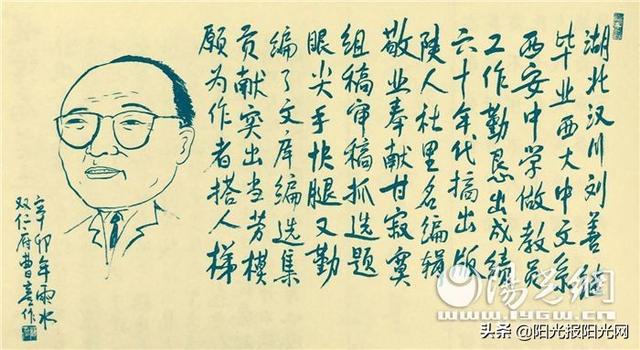 湖北汉川刘善继
毕业西大中文系
西安中学做教员
工作勤恳出成绩
六十年代搞出版
陕人社里名编辑
敬业奉献甘寂寞
组稿审稿抓选题
眼尖手快腿又勤
编了文库编选集
贡献突出当劳模
愿为作者搭人梯
辛卯年雨水
双仁府曹作
陽光網
www.iygw.cn
头条@阳光报阳光网